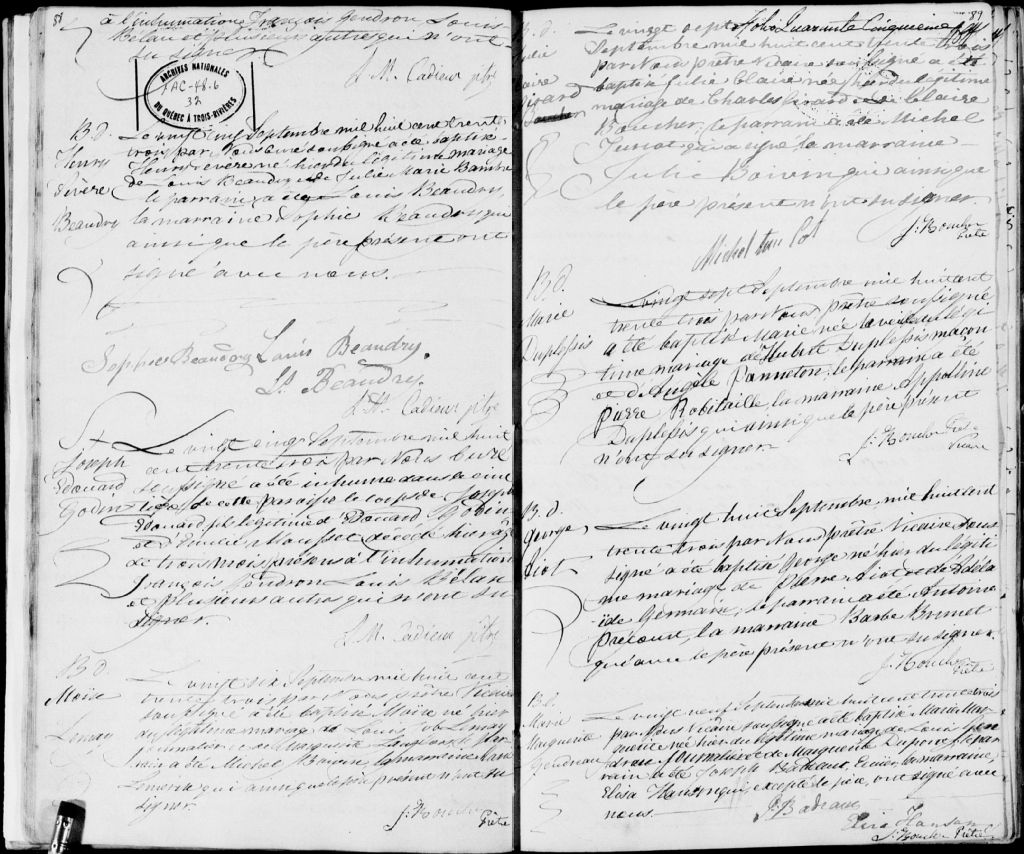 81
à l'inhumation François Gendron Louis
Bélan et plusieurs autres qui n'ont
su signer
L. M. Cadieux ptre
ARCHIVES NATIONALES
FAC-48-6
32
DU QUÉBEC À TROIS-RIVIÈRES
B. d.
Henry
Sévère
Beaudry
Le vingt cinq Septembre mil huit cent trente
trois par Nous Curé soussigné a été baptisé
Henry Sévère né hier du légitime mariage
de Louis Beaudry et de Julie Marie
le parrain a été Louis Beaudry
la marraine Sophie Beaudry qui
ainsi que le père présent ont
signé avec nous.
Sophie Beaudry Louis Beaudry.
Ls. Beaudry.
L. M. Cadieux ptre
St
Joseph
Edouard
Godin
Le vingt cinq Septembre mil huit
cent trente trois par Nous Curé
soussigné a été inhumé dans le cime
tière de cette paroisse le corps de Joseph
Edouard fils légitime d'Edouard Godin
et d'Emilie décédé hier âgé
de trois mois présens à l'inhumation
François Gendron Louis Bélan
et plusieurs autres qui n'ont su
signer.
L. M. Cadieux ptre
B. d.
Moïse
Lemay
Le vingt six Septembre mil huit cent
trente trois par Nous prêtre Vicaire
soussigné a été baptisé Moïse né hier
du légitime mariage de Louis Job Lemay
journalier et de Marguerite le par
rain a été Michel la marraine
qui ainsi que le père présent n'ont su
signer.
J. Boucher
Prêtre
89
Folio Quarante Cinquieme
B. d.
Julie
Claire
Girard
Le vingt sept
Septembre mil huit cent trente trois
par Nous Prêtre Vicaire soussigné a été
baptisé Julie Claire née hier du légitime
mariage de Charles Girard et de Claire
Boucher, le parrain a été Michel
qui a signé la marraine
Julie qui ainsi que
le père présent n'ont su signer.
J. Boucher
Prêtre
Michel
B. d.
Marie
Duplessis
Le vingt sept Septembre mil huit cent
trente trois par Nous Prêtre soussigné
a été baptisé Marie née la veille du légi
time mariage d'Hubert Duplessis maçon
et d'Angèle Panneton, le parrain a été
Pierre Robitaille, la marraine Appolline
Duplessis qui ainsi que le père présent
n'ont su signer.
J. Boucher Prêtre
Vicaire
B. d.
George
Riot
Le vingt huit Septembre mil huit cent
trente trois par Nous prêtre Vicaire sous
signé a été baptisé George né hier du légiti
me mariage de Pierre Riot et de Adéla
ïde Germain; le parrain a été Antoine
Précourt la marraine Barbe Brunet
qui avec le père présent n'ont su signer.
J. Boucher
Prêtre
B. d.
Marie
Marguerite
Gendreau
Le vingt neuf Septembre mil huit cent trente trois
par Nous Vicaire soussigné a été baptisé Marie Mar
guerite née hier du légitime mariage de Louis Gen
dreau Journalier et de Marguerite le par
rain a été Joseph Badeaux Ecuier, la marraine,
Elisa Hanson qui excepté le père, ont signé avec
nous.
J. Badeaux
Eliza Hanson
J. Boucher Prêtre